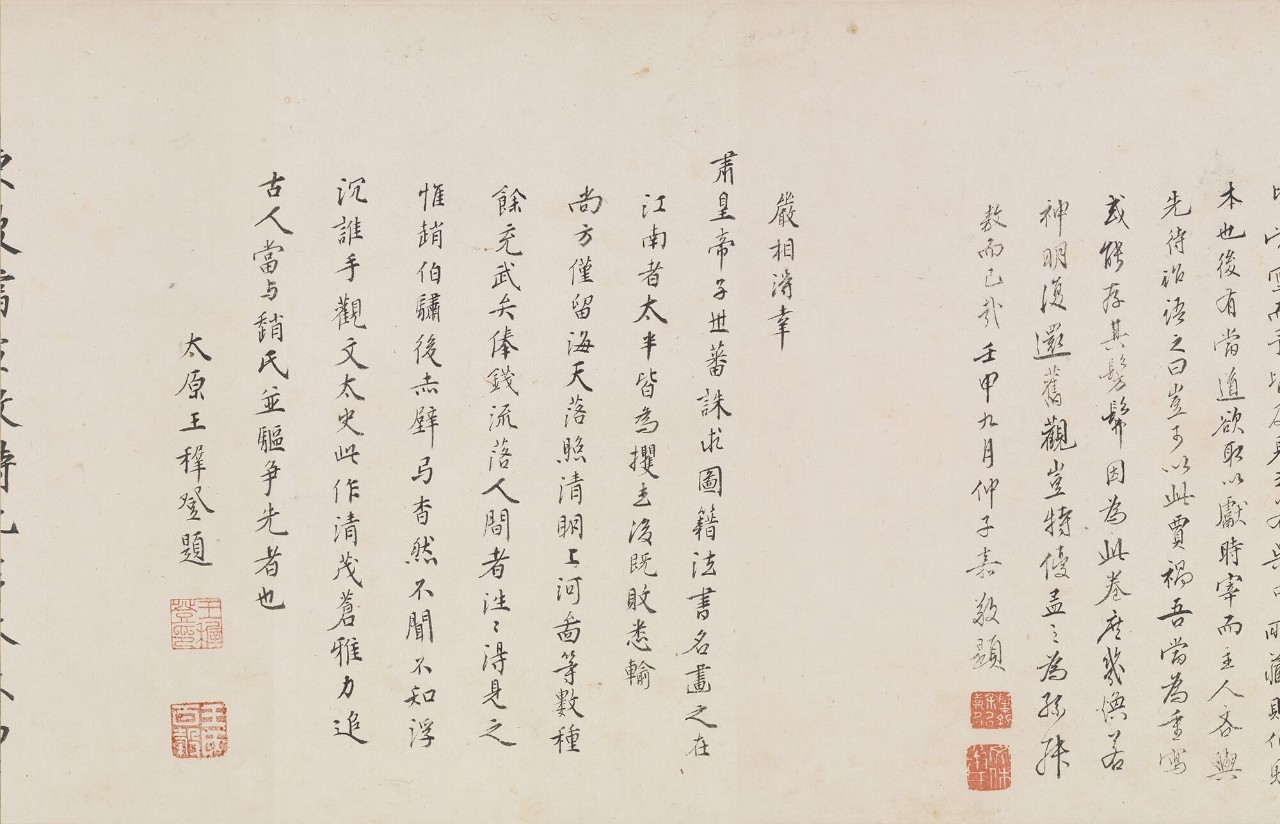 本也後有當道欲取以獻時宰而主人吝與
先待詔語之曰豈可以此賈禍吾當為重寫
或能存其髣髴因為此卷庶幾煥若
神明復還舊觀豈特優孟之為孫叔
敖而已哉壬申九月仲子嘉敬題
嚴相得幸
肅皇帝子世蕃誅求圖籍法書名畫之在
江南者太半皆為攫去後既敗悉輸
尚方僅留海天落照清明上河啚等數種
餘充武弁俸錢流落人間者往〻得見之
惟趙伯驌後赤壁弓杳然不聞不知浮
沉誰手觀文太史此作清茂蒼雅力追
古人當与趙氏並驅爭先者也
太原王穉登題
王穉登印
王氏百穀